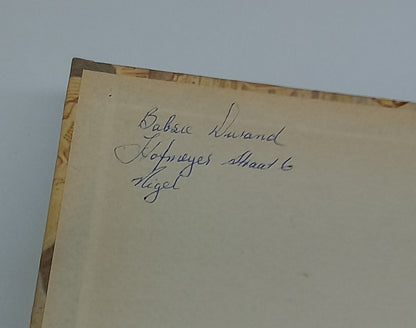 Babsie Durand
Hofmeyer Straat 6
Nigel